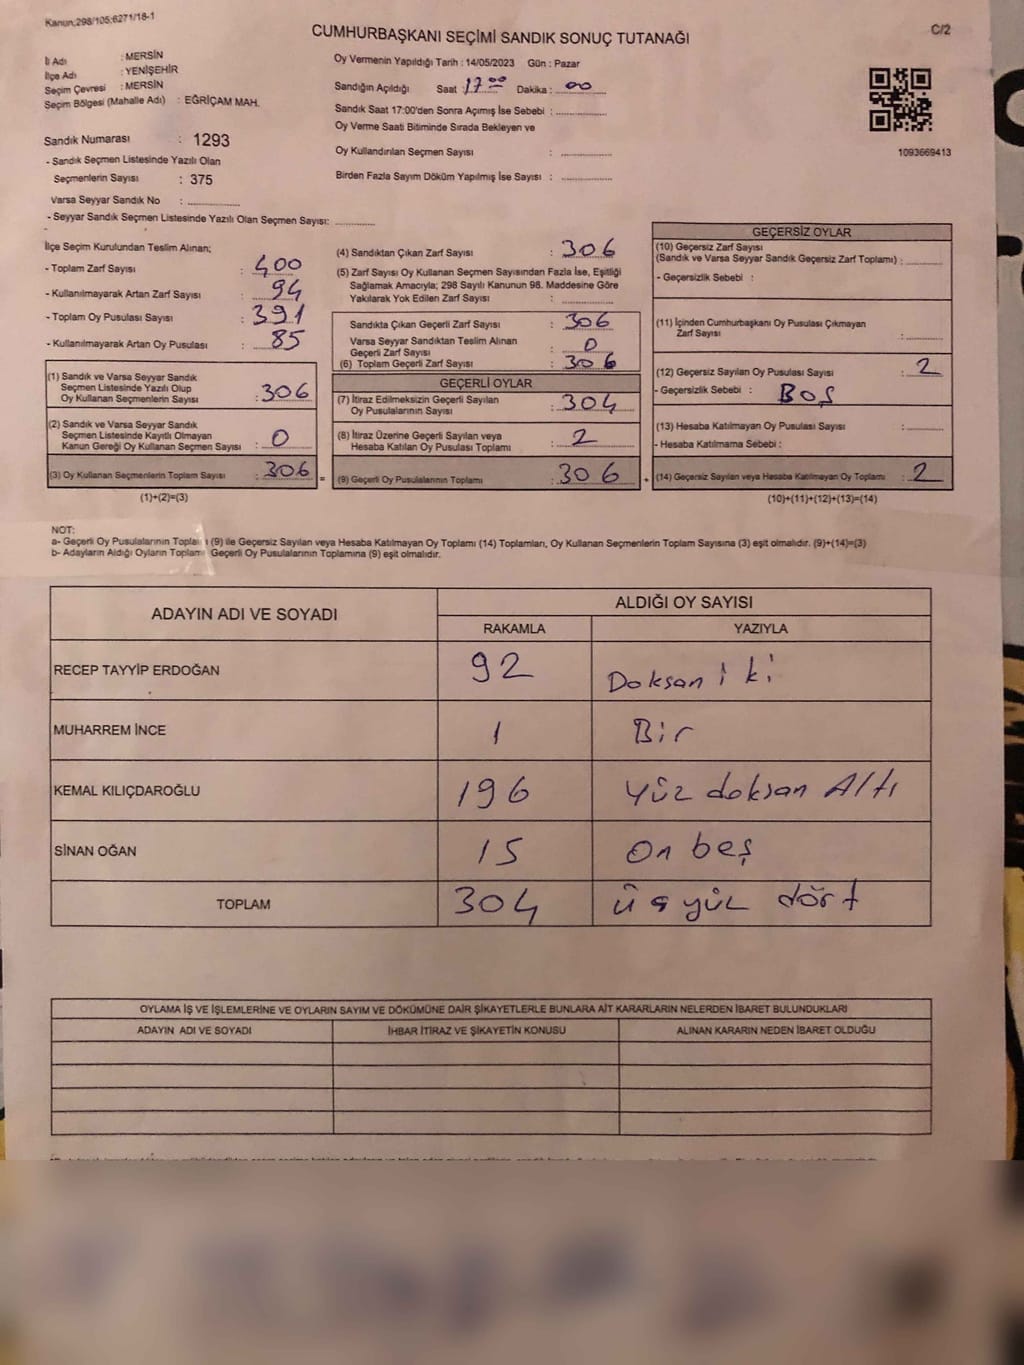 Kanun;298/105;6271/18-1
C/2
CUMHURBAŞKANI SEÇİMİ SANDIK SONUÇ TUTANAĞI
İl Adı : MERSİN
İlçe Adı : YENİŞEHİR
Seçim Çevresi : MERSİN
Seçim Bölgesi (Mahalle Adı) : EĞRİÇAM MAH.
Sandık Numarası : 1293
- Sandık Seçmen Listesinde Yazılı Olan
Seçmenlerin Sayısı : 375
Varsa Seyyar Sandık No :
- Seyyar Sandık Seçmen Listesinde Yazılı Olan Seçmen Sayısı:
Oy Vermenin Yapıldığı Tarih : 14/05/2023 Gün : Pazar
Sandığın Açıldığı Saat : 17 00 Dakika : 00
Sandık Saat 17:00'den Sonra Açımış İse Sebebi :
Oy Verme Saati Bitiminde Sırada Bekleyen ve
Oy Kullandırılan Seçmen Sayısı :
Birden Fazla Sayım Döküm Yapılmış İse Sayısı :
1093669413
İlçe Seçim Kurulundan Teslim Alınan;
- Toplam Zarf Sayısı : 400
- Kullanılmayarak Artan Zarf Sayısı : 94
- Toplam Oy Pusulası Sayısı : 391
- Kullanılmayarak Artan Oy Pusulası : 85
(1) Sandık ve Varsa Seyyar Sandık
Seçmen Listesinde Yazılı Olup
Oy Kullanan Seçmenlerin Sayısı : 306
(2) Sandık ve Varsa Seyyar Sandık
Seçmen Listesinde Kayıtlı Olmayan
Kanun Gereği Oy Kullanan Seçmen Sayısı : 0
(3) Oy Kullanan Seçmenlerin Toplam Sayısı : 306
(1)+(2)=(3)
(4) Sandıktan Çıkan Zarf Sayısı : 306
(5) Zarf Sayısı Oy Kullanan Seçmen Sayısından Fazla İse, Eşitliği
Sağlamak Amacıyla; 298 Sayılı Kanunun 98. Maddesine Göre
Yakılarak Yok Edilen Zarf Sayısı :
Sandıkta Çıkan Geçerli Zarf Sayısı : 306
Varsa Seyyar Sandıktan Teslim Alınan
Geçerli Zarf Sayısı : 0
(6) Toplam Geçerli Zarf Sayısı : 306
GEÇERLİ OYLAR
(7) İtiraz Edilmeksizin Geçerli Sayılan
Oy Pusulalarının Sayısı : 304
(8) İtiraz Üzerine Geçerli Sayılan veya
Hesaba Katılan Oy Pusulası Toplamı : 2
= (9) Geçerli Oy Pusulalarının Toplamı : 306 +
GEÇERSİZ OYLAR
(10) Geçersiz Zarf Sayısı
(Sandık ve Varsa Seyyar Sandık Geçersiz Zarf Toplamı) :
- Geçersizlik Sebebi :
(11) İçinden Cumhurbaşkanı Oy Pusulası Çıkmayan
Zarf Sayısı :
(12) Geçersiz Sayılan Oy Pusulası Sayısı : 2
- Geçersizlik Sebebi : BOŞ
(13) Hesaba Katılmayan Oy Pusulası Sayısı :
- Hesaba Katılmama Sebebi :
(14) Geçersiz Sayılan veya Hesaba Katılmayan Oy Toplamı : 2
(10)+(11)+(12)+(13)=(14)
NOT:
a- Geçerli Oy Pusulalarının Toplamı (9) ile Geçersiz Sayılan veya Hesaba Katılmayan Oy Toplamı (14) Toplamları, Oy Kullanan Seçmenlerin Toplam Sayısına (3) eşit olmalıdır. (9)+(14)=(3)
b- Adayların Aldığı Oyların Toplamı Geçerli Oy Pusulalarının Toplamına (9) eşit olmalıdır.
ADAYIN ADI VE SOYADI
ALDIĞI OY SAYISI
RAKAMLA YAZIYLA
RECEP TAYYİP ERDOĞAN 92 Doksan iki
MUHARREM İNCE 1 Bir
KEMAL KILIÇDAROĞLU 196 Yüz doksan Altı
SİNAN OĞAN 15 On beş
TOPLAM 304 üçyüz dört
OYLAMA İŞ VE İŞLEMLERİNE VE OYLARIN SAYIM VE DÖKÜMÜNE DAİR ŞİKAYETLERLE BUNLARA AİT KARARLARIN NELERDEN İBARET BULUNDUKLARI
ADAYIN ADI VE SOYADI İHBAR İTİRAZ VE ŞİKAYETİN KONUSU ALINAN KARARIN NEDEN İBARET OLDUĞU